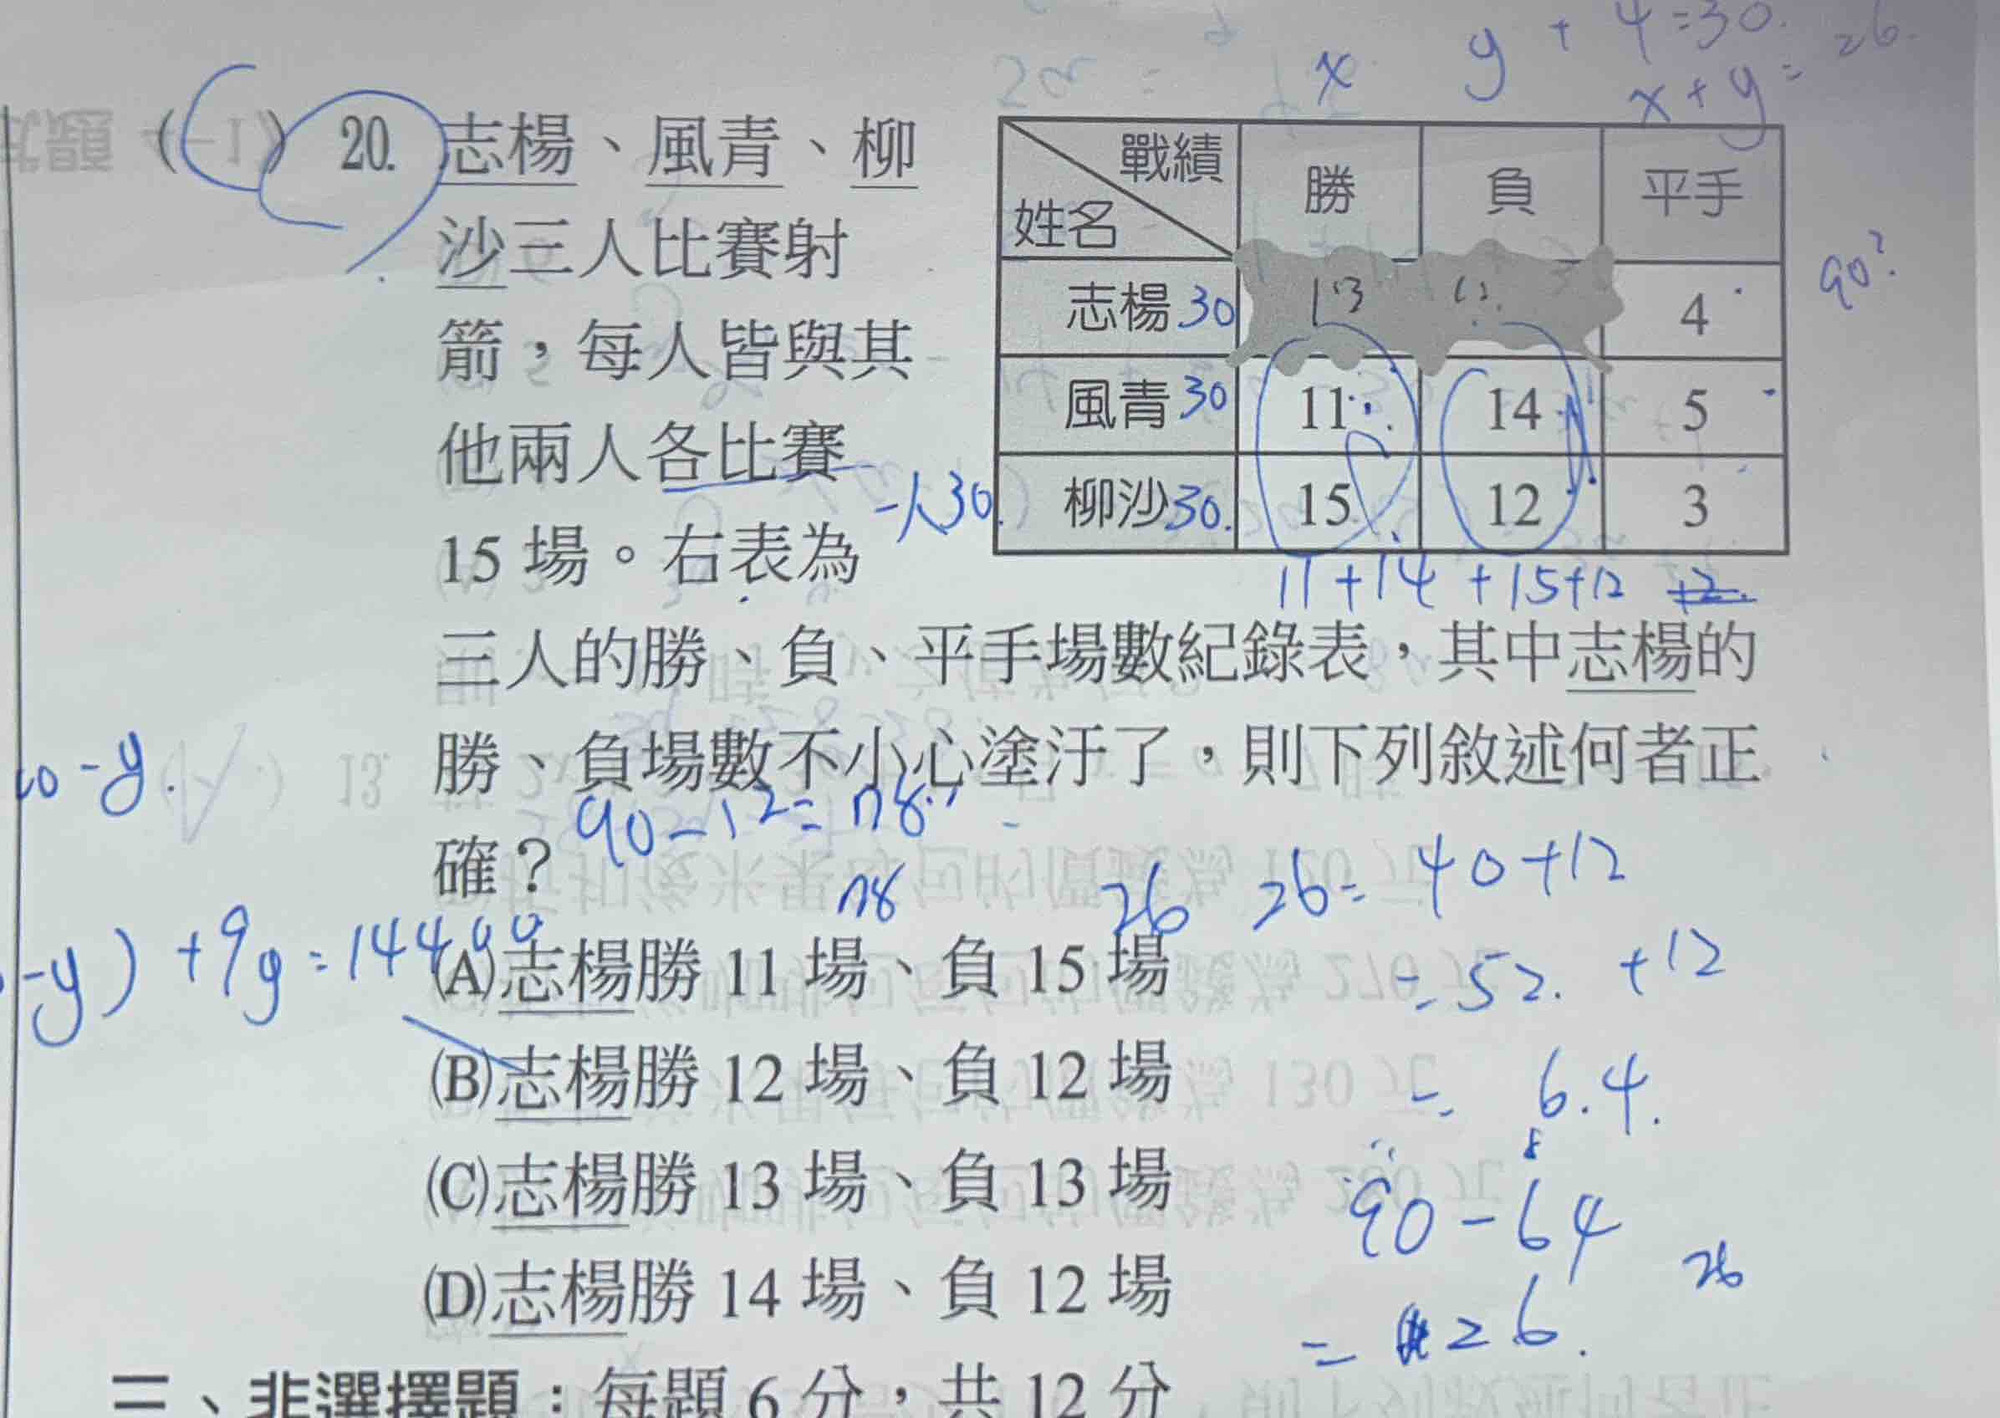 x y + 4 = 30.
x + y = 26.
20. 志楊、風青、柳
沙三人比賽射
箭，每人皆與其
他兩人各比賽
一人30.
15 場。右表為
戰績 姓名 勝 負 平手
志楊 30 13 4
90?
風青 30 11 14 5
柳沙 30. 15 12 3
11+14+15+12
三人的勝、負、平手場數紀錄表，其中志楊的
勝、負場數不小心塗汙了，則下列敘述何者正
確？
90-12=78
78 26 26= 40+12
-y) +9y=14400
(A)志楊勝 11 場、負 15 場
= 52. +12
(B)志楊勝 12 場、負 12 場
= 64.
(C)志楊勝 13 場、負 13 場
90-64
(D)志楊勝 14 場、負 12 場
26
= 26.
二、非選擇題：每題 6 分，共 12 分